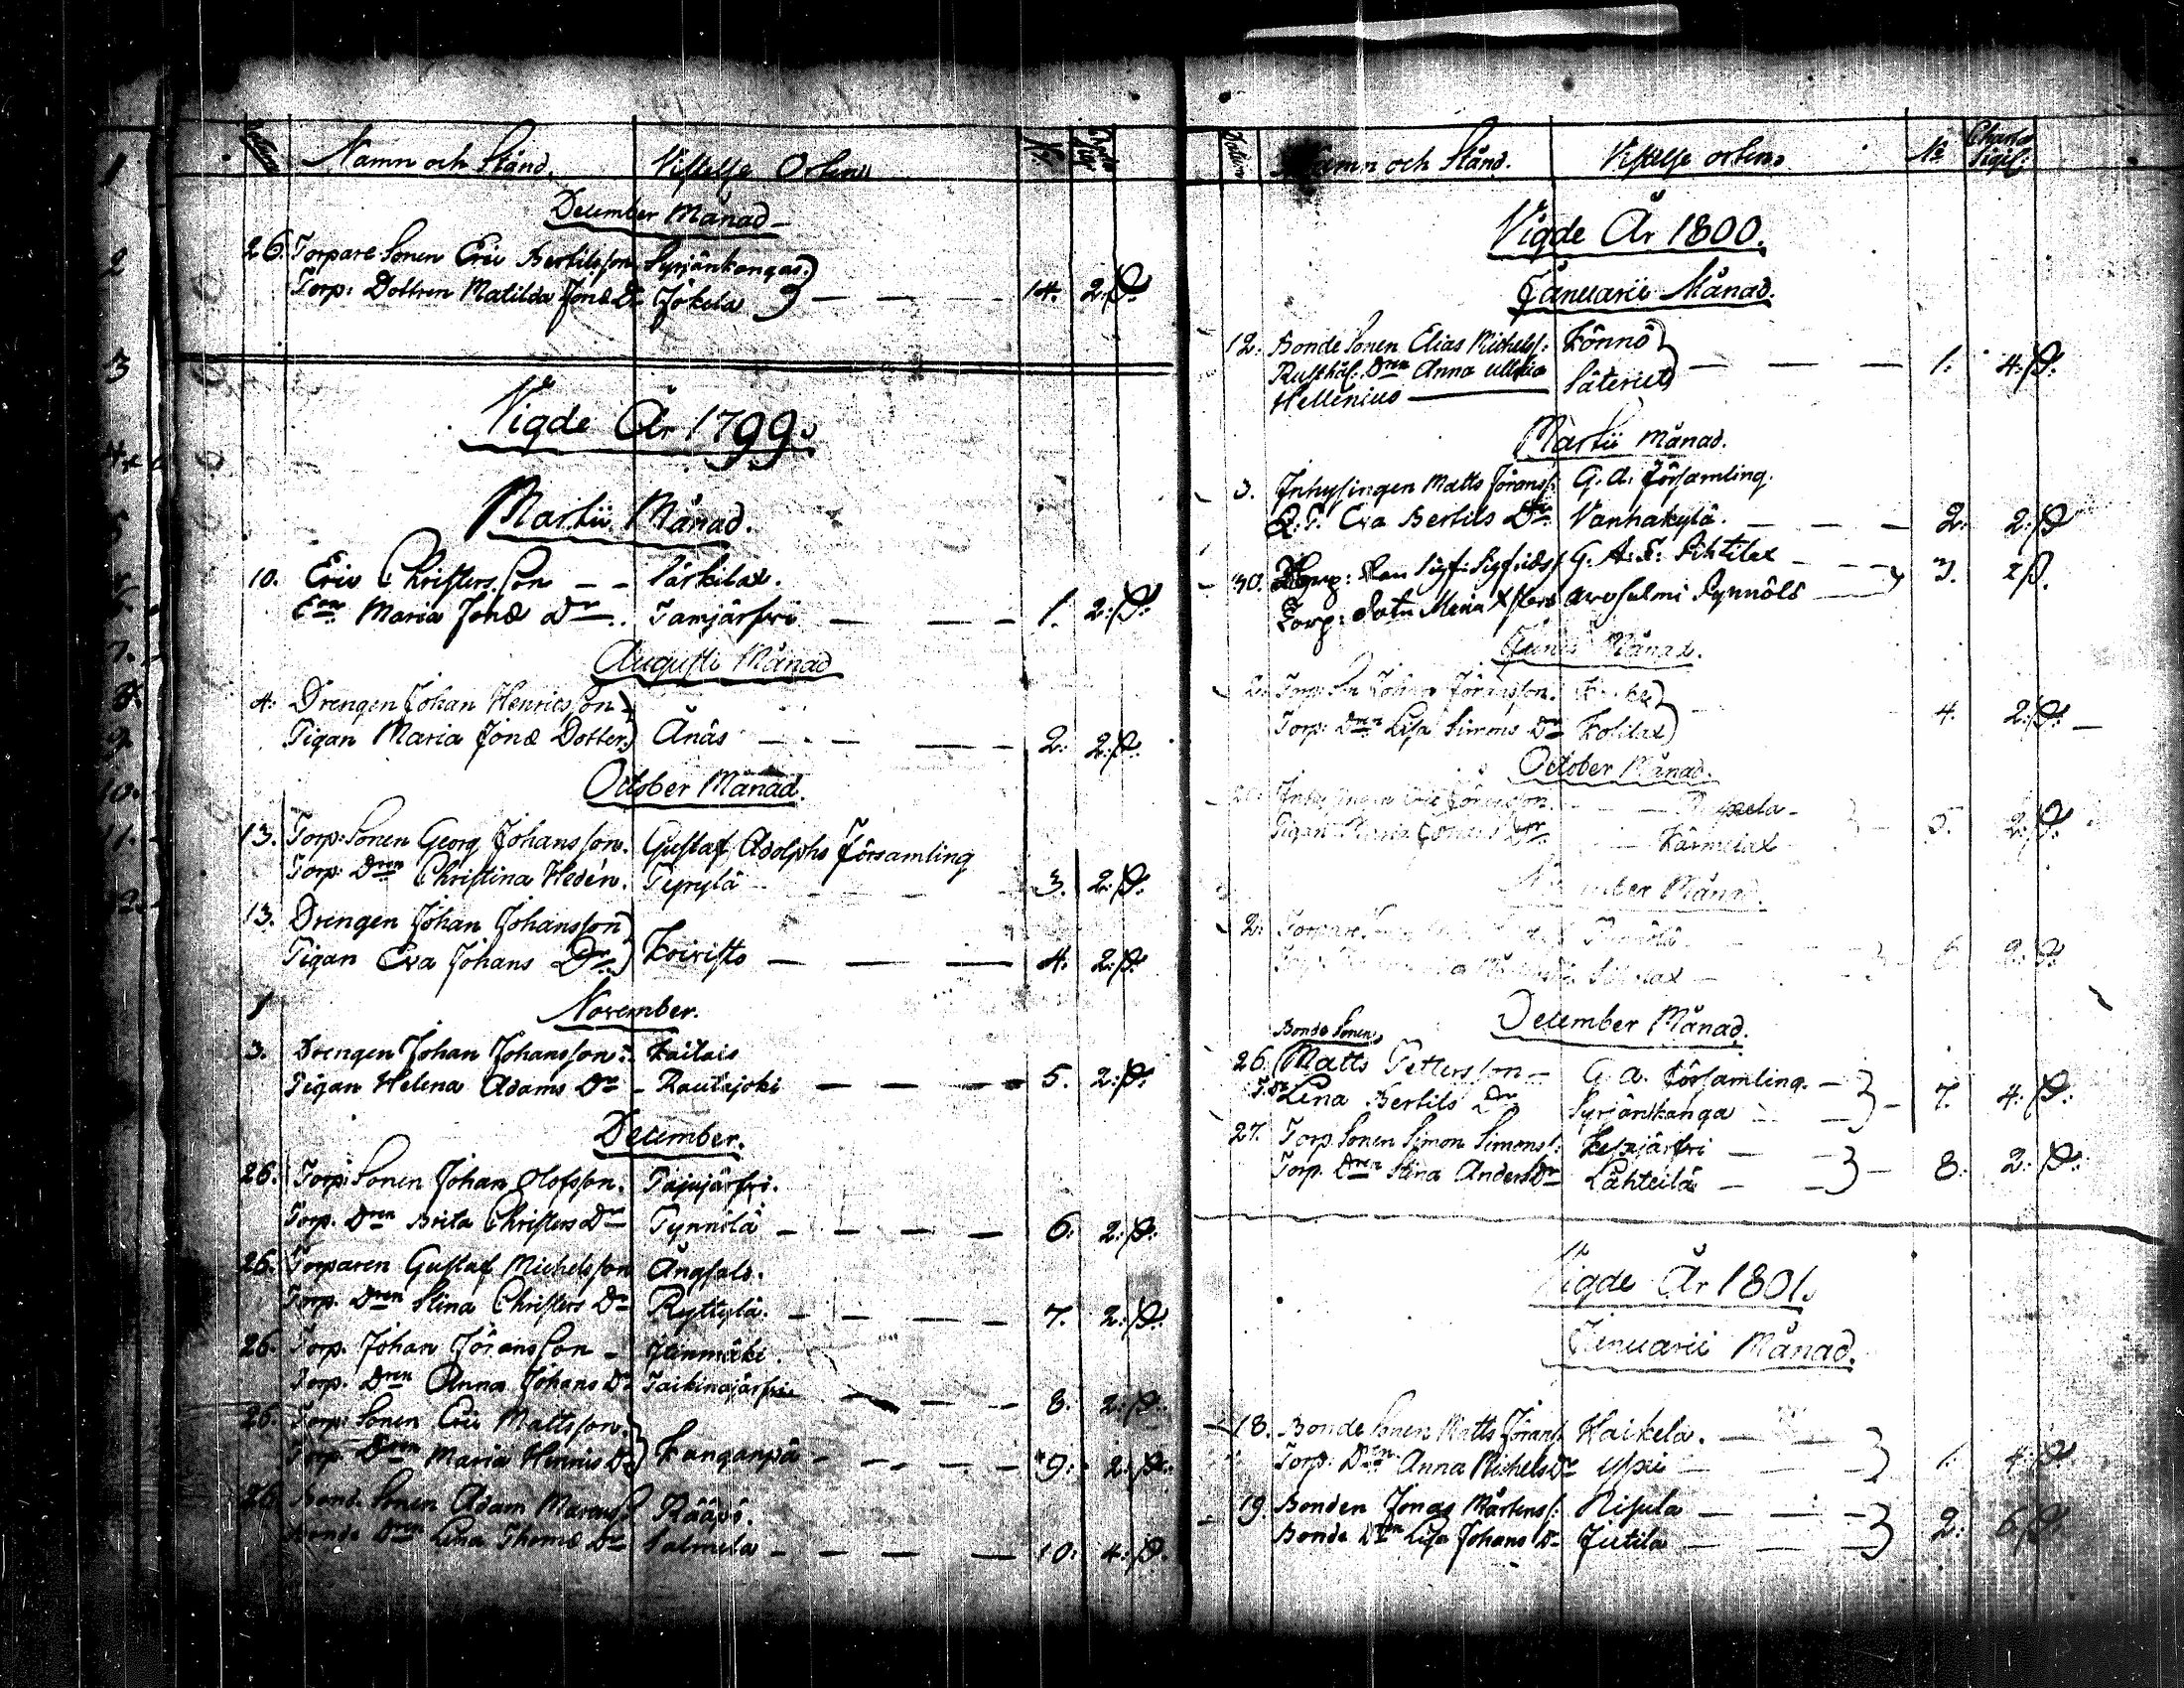 Datum Namn och Stånd. Vistelse Orten N:o Charta Sigil:
December Månad
26. Torpare Sonen Eric Bertilsson Syrjänkangas.
Torp: Dottren Matilda Jonæ Dr Jokela 14. 2:ß.
Vigde År 1799.
Martii Månad.
10. Eric Christersson Särkilax.
Enn Maria Jonæ Dr. Tamjärfvi 1. 2:ß:
Augusti Månad
4. Drengen Johan Henricsson
Pigan Maria Jonæ Dotter. Änäs 2: 2:ß.
October Månad.
13. Torp: Sonen Georg Johansson. Gustaf Adolphs Församling
Torp: Dren Christina Hedén. Tyrylä 3. 2:ß.
13. Drengen Johan Johansson
Pigan Eva Johans Dr. Koivisto 4. 2:ß.
November.
3. Drengen Johan Johansson. Kailais
Pigan Helena Adams Dr Rautajoki 5. 2:ß.
December.
26. Torp: Sonen Johan Olofsson. Pajujärfvi.
Torp. Dren Brita Christers Dr Pynnölä 6. 2:ß:
26. Torparen Gustaf Michelsson Ängsalo.
Torp. Dren Stina Christers Dr Ryttylä. 7. 2:ß.
26. Torp. Johan Jöransson
Torp. Dren Anna Johans Dr Taikinajärfvi 8. 2:ß.
26. Torp: Sonen Eric Mattsson.
Torp. Dren Maria Henrics Dr Kanganpä 9. 2:ß.
26 Bond. Sonen Adam Rääpö.
Bonde Dren Lena Thomæ Dr Salmela 10: 4:ß.
Datum Namn och Stånd. Vistelse orten. No Charta Sigil:
Vigde År 1800.
Januarii Månad.
12. Bonde Sonen Elias Michels: Könnö
Rusthål. Dren Anna Ulrica Säteriet 1. 4:ß.
Hellenius
Martii Månad.
3. Inhysingen Matts Jörans: G. A. Församling.
Q. P. Eva Bertils Dr. Vanhakylä. 2: 2:ß
30. Sigf: Sigfrids G. A. F. Pihtilax 3. 2ß.
Torp: Maria Xsters Pynnölä
Junii Månad.
2. Torp: Son Johan Jöransson.
Torp: Dren Lisa Simons Dr Kolilax 4. 2:ß.
October Månad.
Inhysingen Eric Jöransson
Pigan Maria Dr. Kärmelax 5. 2:ß.
November Månad.
2. Torpare 6. 2:ß.
December Månad.
Bonde Sonen
26. Matts Pettersson G. A. Församling.
Lena Bertils Dr Syrjänkanga 7. 4:ß.
27. Torp. Sonen Simon Simons: Keskjärfvi
Torp. Dren Stina Anders Dr Lähteilä 8. 2:ß.
Vigde År 1801.
Januarii Månad.
18. Bonde Sonen Matts Jörans: Haikela.
Torp. Dren Anna Michels Dr 1. 4:ß
19. Bonden Jonas Mårtens: Nisula
Bonde Dren Lisa Johans Dr Jutila 2: 6:ß.